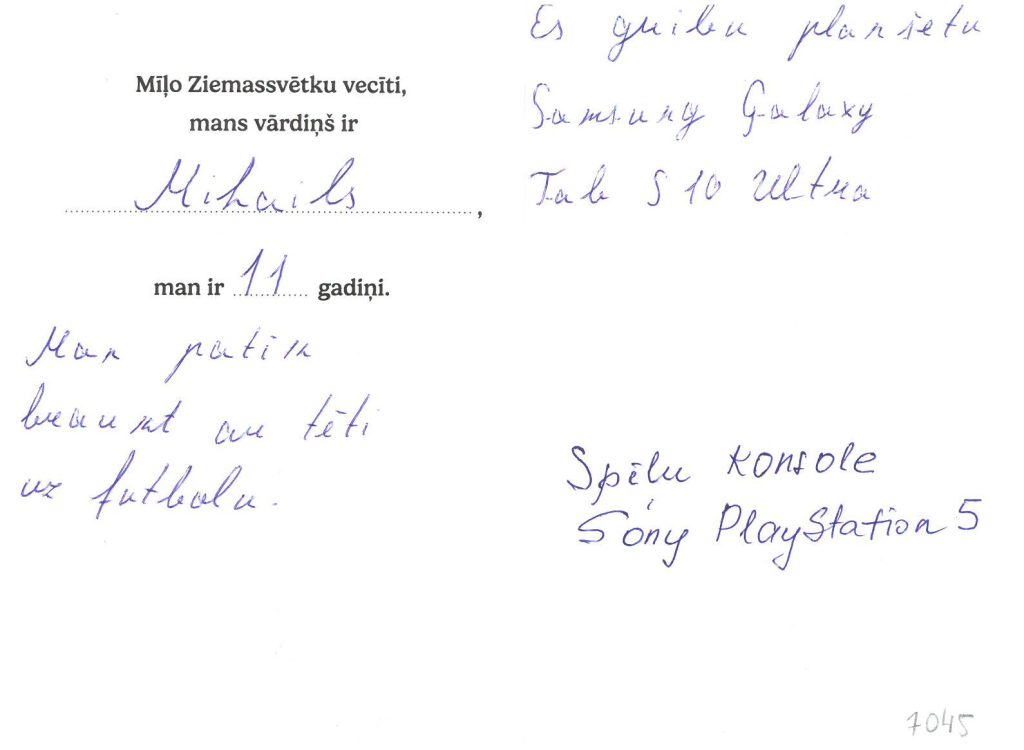 Mīļo Ziemassvētku vecīti,
mans vārdiņš ir
Mihails,
man ir 11 gadiņi.
Man patīk
braukt ar tēti
uz futbolu.
Es gribu planšetu
Samsung Galaxy
Tab S 10 Ultra
Spēļu konsole
Sony PlayStation 5
7045